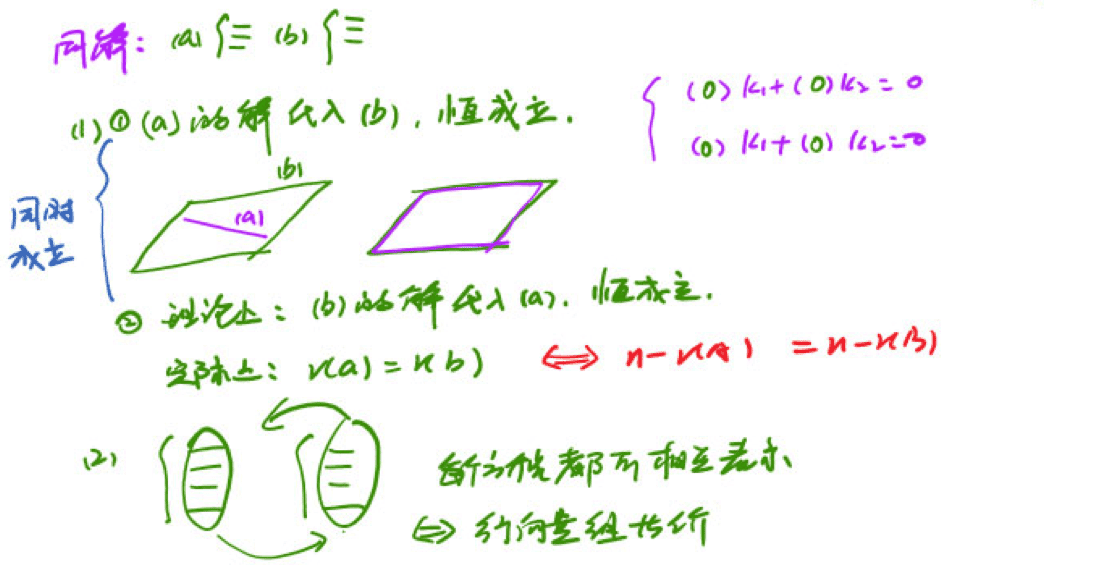 同解: (a) { ≡ (b) { ≡
(1) ① (a) 的解代入 (b), 恒成立.
{ (0) k₁ + (0) k₂ = 0
(0) k₁ + (0) k₂ = 0
同时
成立
(b)
(a)
② 理论上: (b) 的解代入 (a), 恒成立.
实际上: r(a) = r(b) ⟺ n - r(A) = n - r(B)
(2)
每个方程都可相互表示
⟺ 行向量组等价